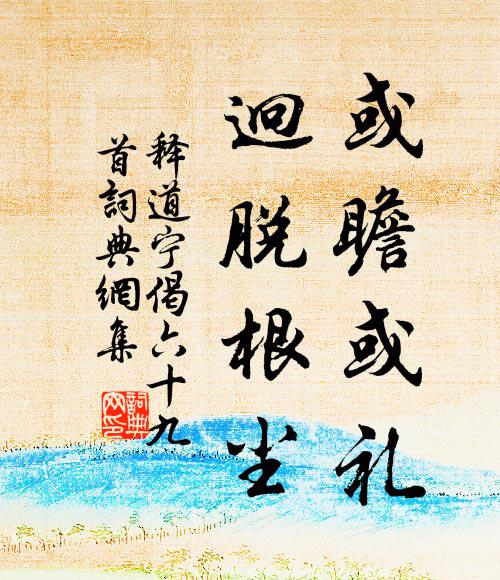 或瞻或礼
迥脱根尘
释道宁偈六十九
首詞典網集
詞典
网印